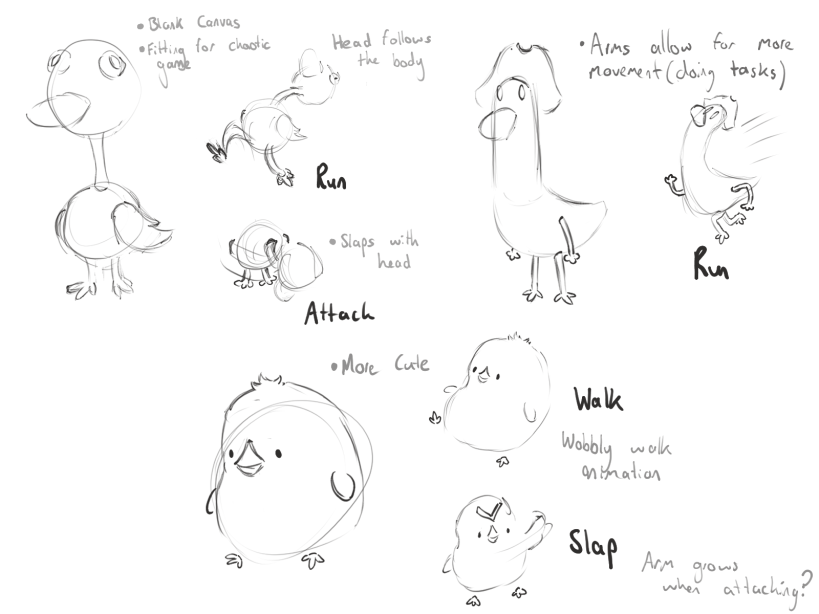 • Blank Canvas
• Fitting for chaotic
game
Head follows
the body
Run
• Slaps with
head
Attack
• Arms allow for more
movement (doing tasks)
Run
• More Cute
Walk
Wobbly walk
animation
Slap
Arm grows
when attacking?